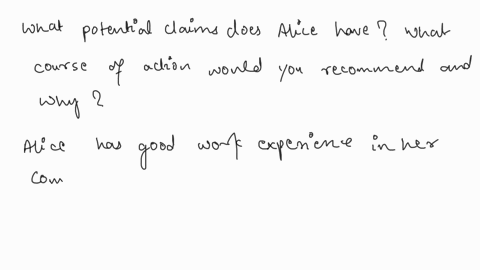 What potential claims does Alice have? What
course of action would you recommend and
why?
Alice has good work experience in her
com